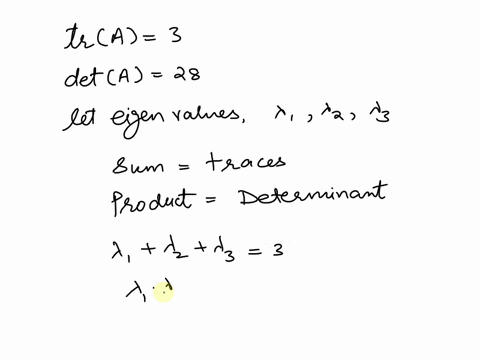 tr(A) = 3
det(A) = 28
let eigen values, λ₁, λ₂, λ₃
Sum = traces
Product = Determinant
λ₁ + λ₂ + λ₃ = 3
λ₁ · λ